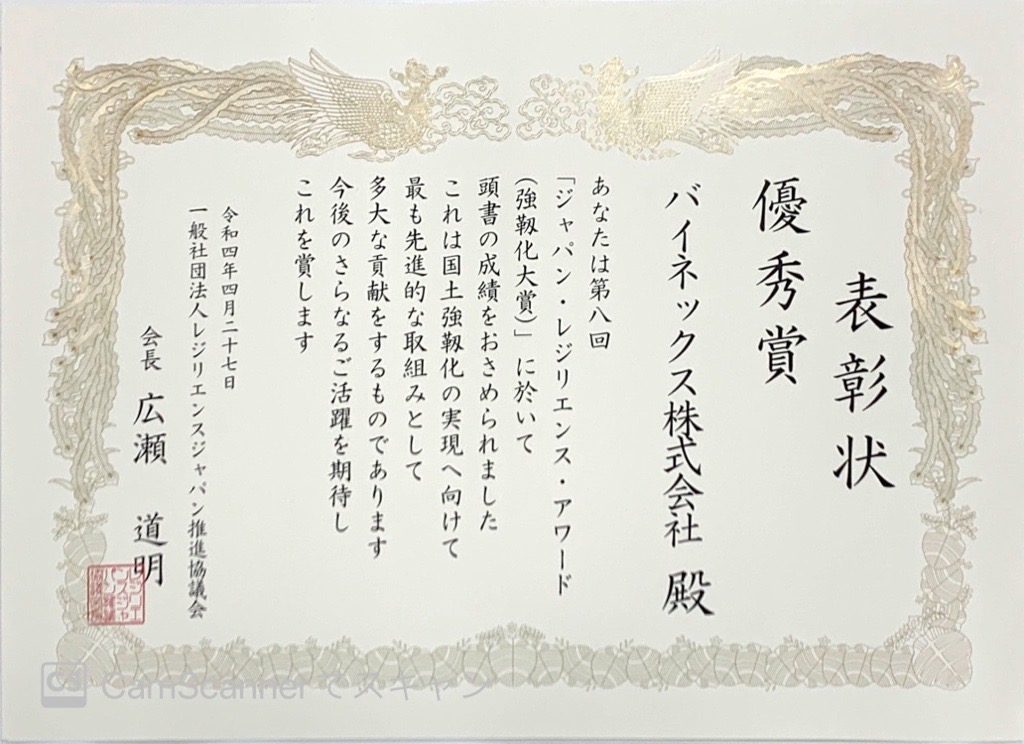 表彰状
優秀賞
バイネックス株式会社 殿
あなたは第八回
「ジャパン・レジリエンス・アワード
(強靱化大賞)」に於いて
頭書の成績をおさめられました
これは国土強靱化の実現へ向けて
最も先進的な取組みとして
多大な貢献をするものであります
今後のさらなるご活躍を期待し
これを賞します
令和四年四月二十七日
一般社団法人レジリエンスジャパン推進協議会
会長 広瀬 道明
CS CamScanner でスキャン